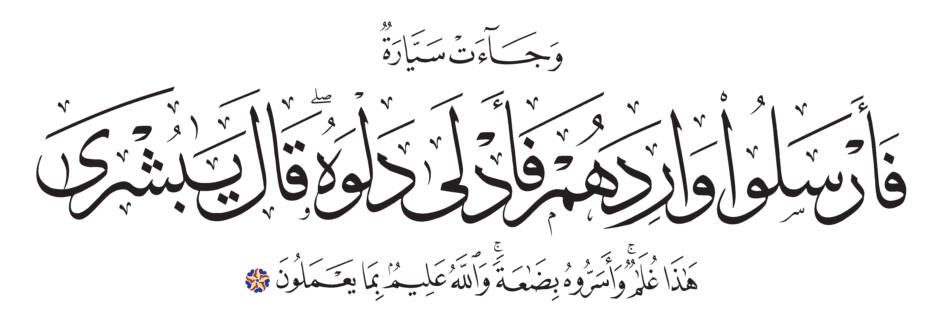 وَجَآءَتْ سَيَّارَةٌ
فَأَرْسَلُوا۟ وَارِدَهُمْ فَأَدْلَىٰ دَلْوَهُۥ ۖ قَالَ يَـٰبُشْرَىٰ
هَـٰذَا غُلَـٰمٌ ۚ وَأَسَرُّوهُ بِضَـٰعَةً ۚ وَٱللَّهُ عَلِيمٌۢ بِمَا يَعْمَلُونَ